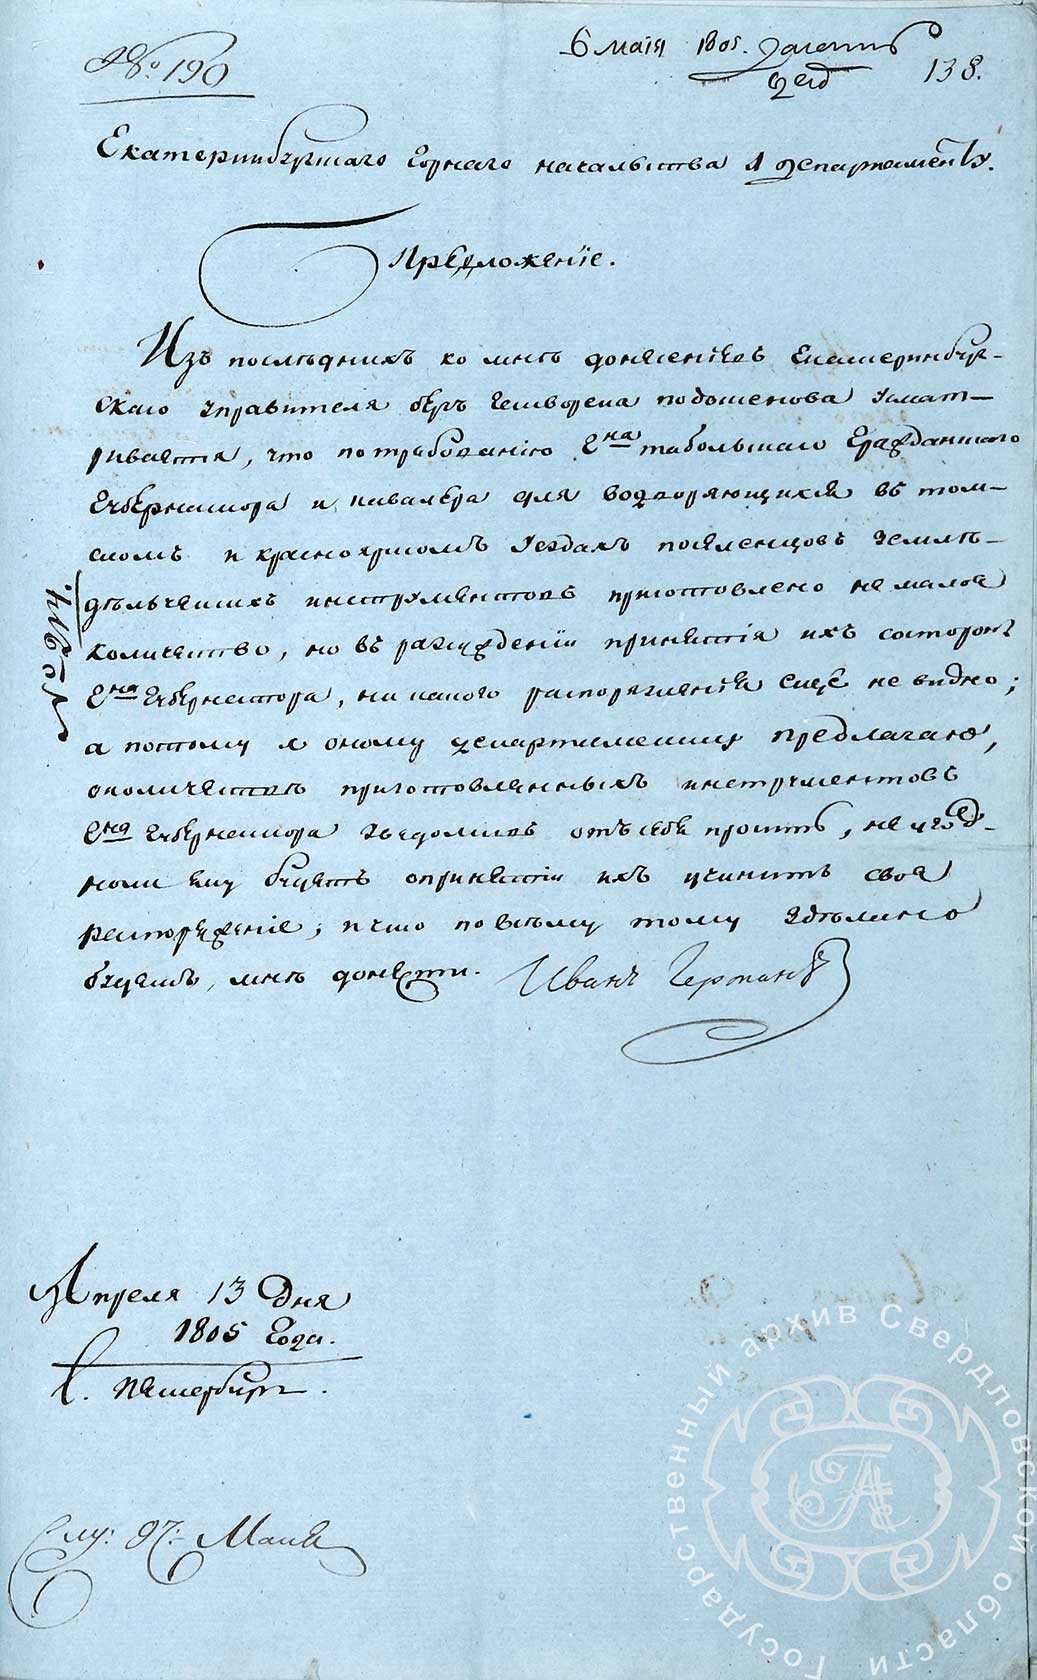 № 190
6 маія 1805.
138.
Екатеринбургскаго Горнаго начальства 1 департаменту.
Предложеніе.
Изъ последнихъ ко мнѣ донесеніевъ Екатеринбург-
скаго управителя бергъ гешворена подоксенова усмат-
ривается, что по требованію Гна табольскаго Гражданскаго
Губернатора и кавалера для водворяющихся въ том-
скомъ и красноярскомъ уездахъ поселенцовъ земле-
дѣльческихъ инструментовъ приготовлено не малое
количество, но въ разсужденіи принятія ихъ состороны
Гна Губернатора, ни какого распоряженія еще не видно;
а потому я оному департаменту предлагаю,
околичествѣ приготовленныхъ инструментовъ
Гна Губернатора уведомивъ отъ себя просить, не угод-
но ли ему будетъ опринятіи ихъ учинить свое
распоряженіе; и что по всему тому зделано
будетъ, мнѣ донести. Иванъ Германъ
№ 274.
Апреля 13 Дня
1805 Года.
С. петербургъ.
Слу: 97: Маия
Государственный архив Свердловской области
ГА